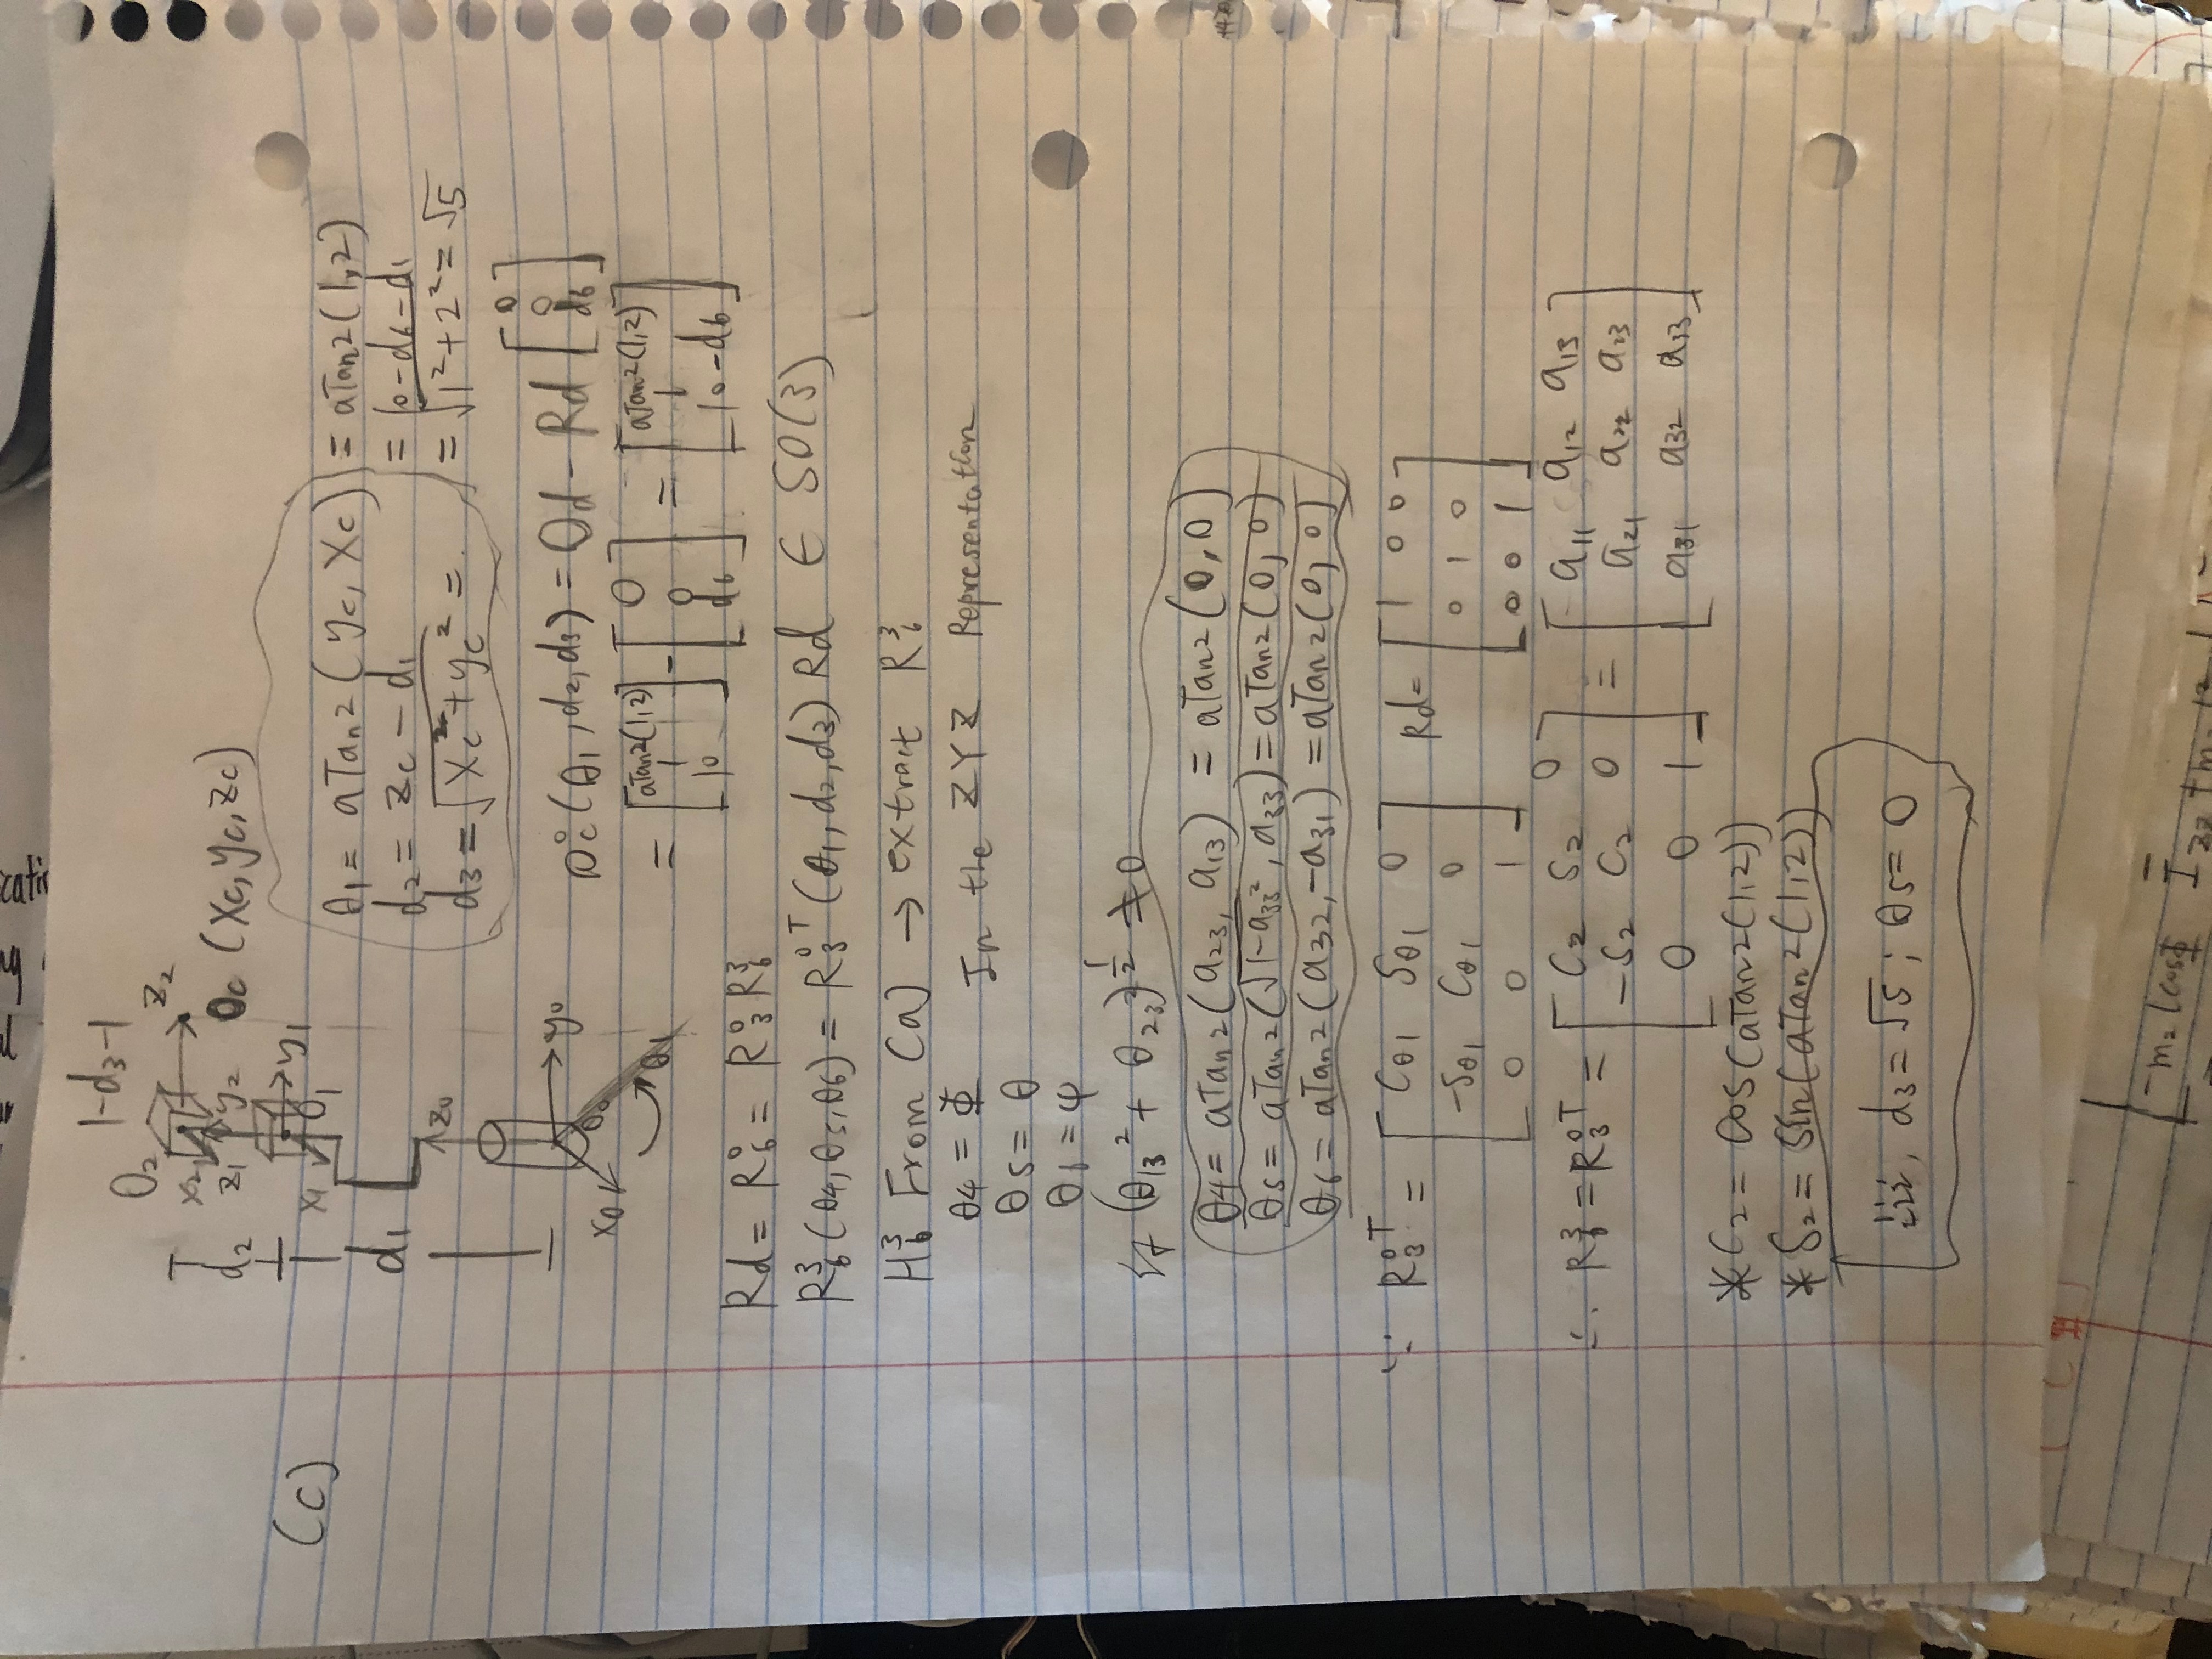 |-d₃-|
O₂
z₂
x₂
d₂
z₁ y₂ Oc (xc, yc, zc)
(c)
y₁
x₁ O₁
θ₁ = aTan2(yc, xc) = aTan2(1,2)
d₁
d₂ = zc - d₁ = 10-d6-d₁
z₀
d₃ = √(xc² + yc²) = √(1²+2²) = √5
y₀
x₀ O₀
θ₁
O°c(θ₁, d₂, d₃) = Od - Rd [0 0 d6]
= [aTan2(1,2) 1 10] - [0 0 d6] = [aTan2(1,2) 1 10-d6]
Rd = R⁰₆ = R⁰₃ R³₆
R³₆(θ4, θ5, θ6) = R⁰₃ᵀ(θ₁, d₂, d₃) Rd ∈ SO(3)
H³₆ From (a) → extract R³₆
θ4 = Φ In the ZYZ Representation
θ5 = θ
θ6 = ψ
if (θ₁₃² + θ₂₃²)^½ ≠ 0
θ4 = aTan2(a₂₃, a₁₃) = aTan2(0,0)
θ5 = aTan2(√(1-a₃₃²), a₃₃) = aTan2(0,0)
θ6 = aTan2(a₃₂, -a₃₁) = aTan2(0,0)
∵ R⁰₃ᵀ = [Cθ₁ Sθ₁ 0 Rd = [1 0 0
-Sθ₁ Cθ₁ 0 0 1 0
0 0 1] 0 0 1]
∴ R³₆ = R⁰₃ᵀ = [C₂ S₂ 0 = [a₁₁ a₁₂ a₁₃
-S₂ C₂ 0 a₂₁ a₂₂ a₂₃
0 0 1] a₃₁ a₃₂ a₃₃]
*C₂ = Cos(aTan2(1,2))
*S₂ = Sin(aTan2(1,2))
iii, d₃ = √5 ; θ5 = 0
-m₂lcosΦ